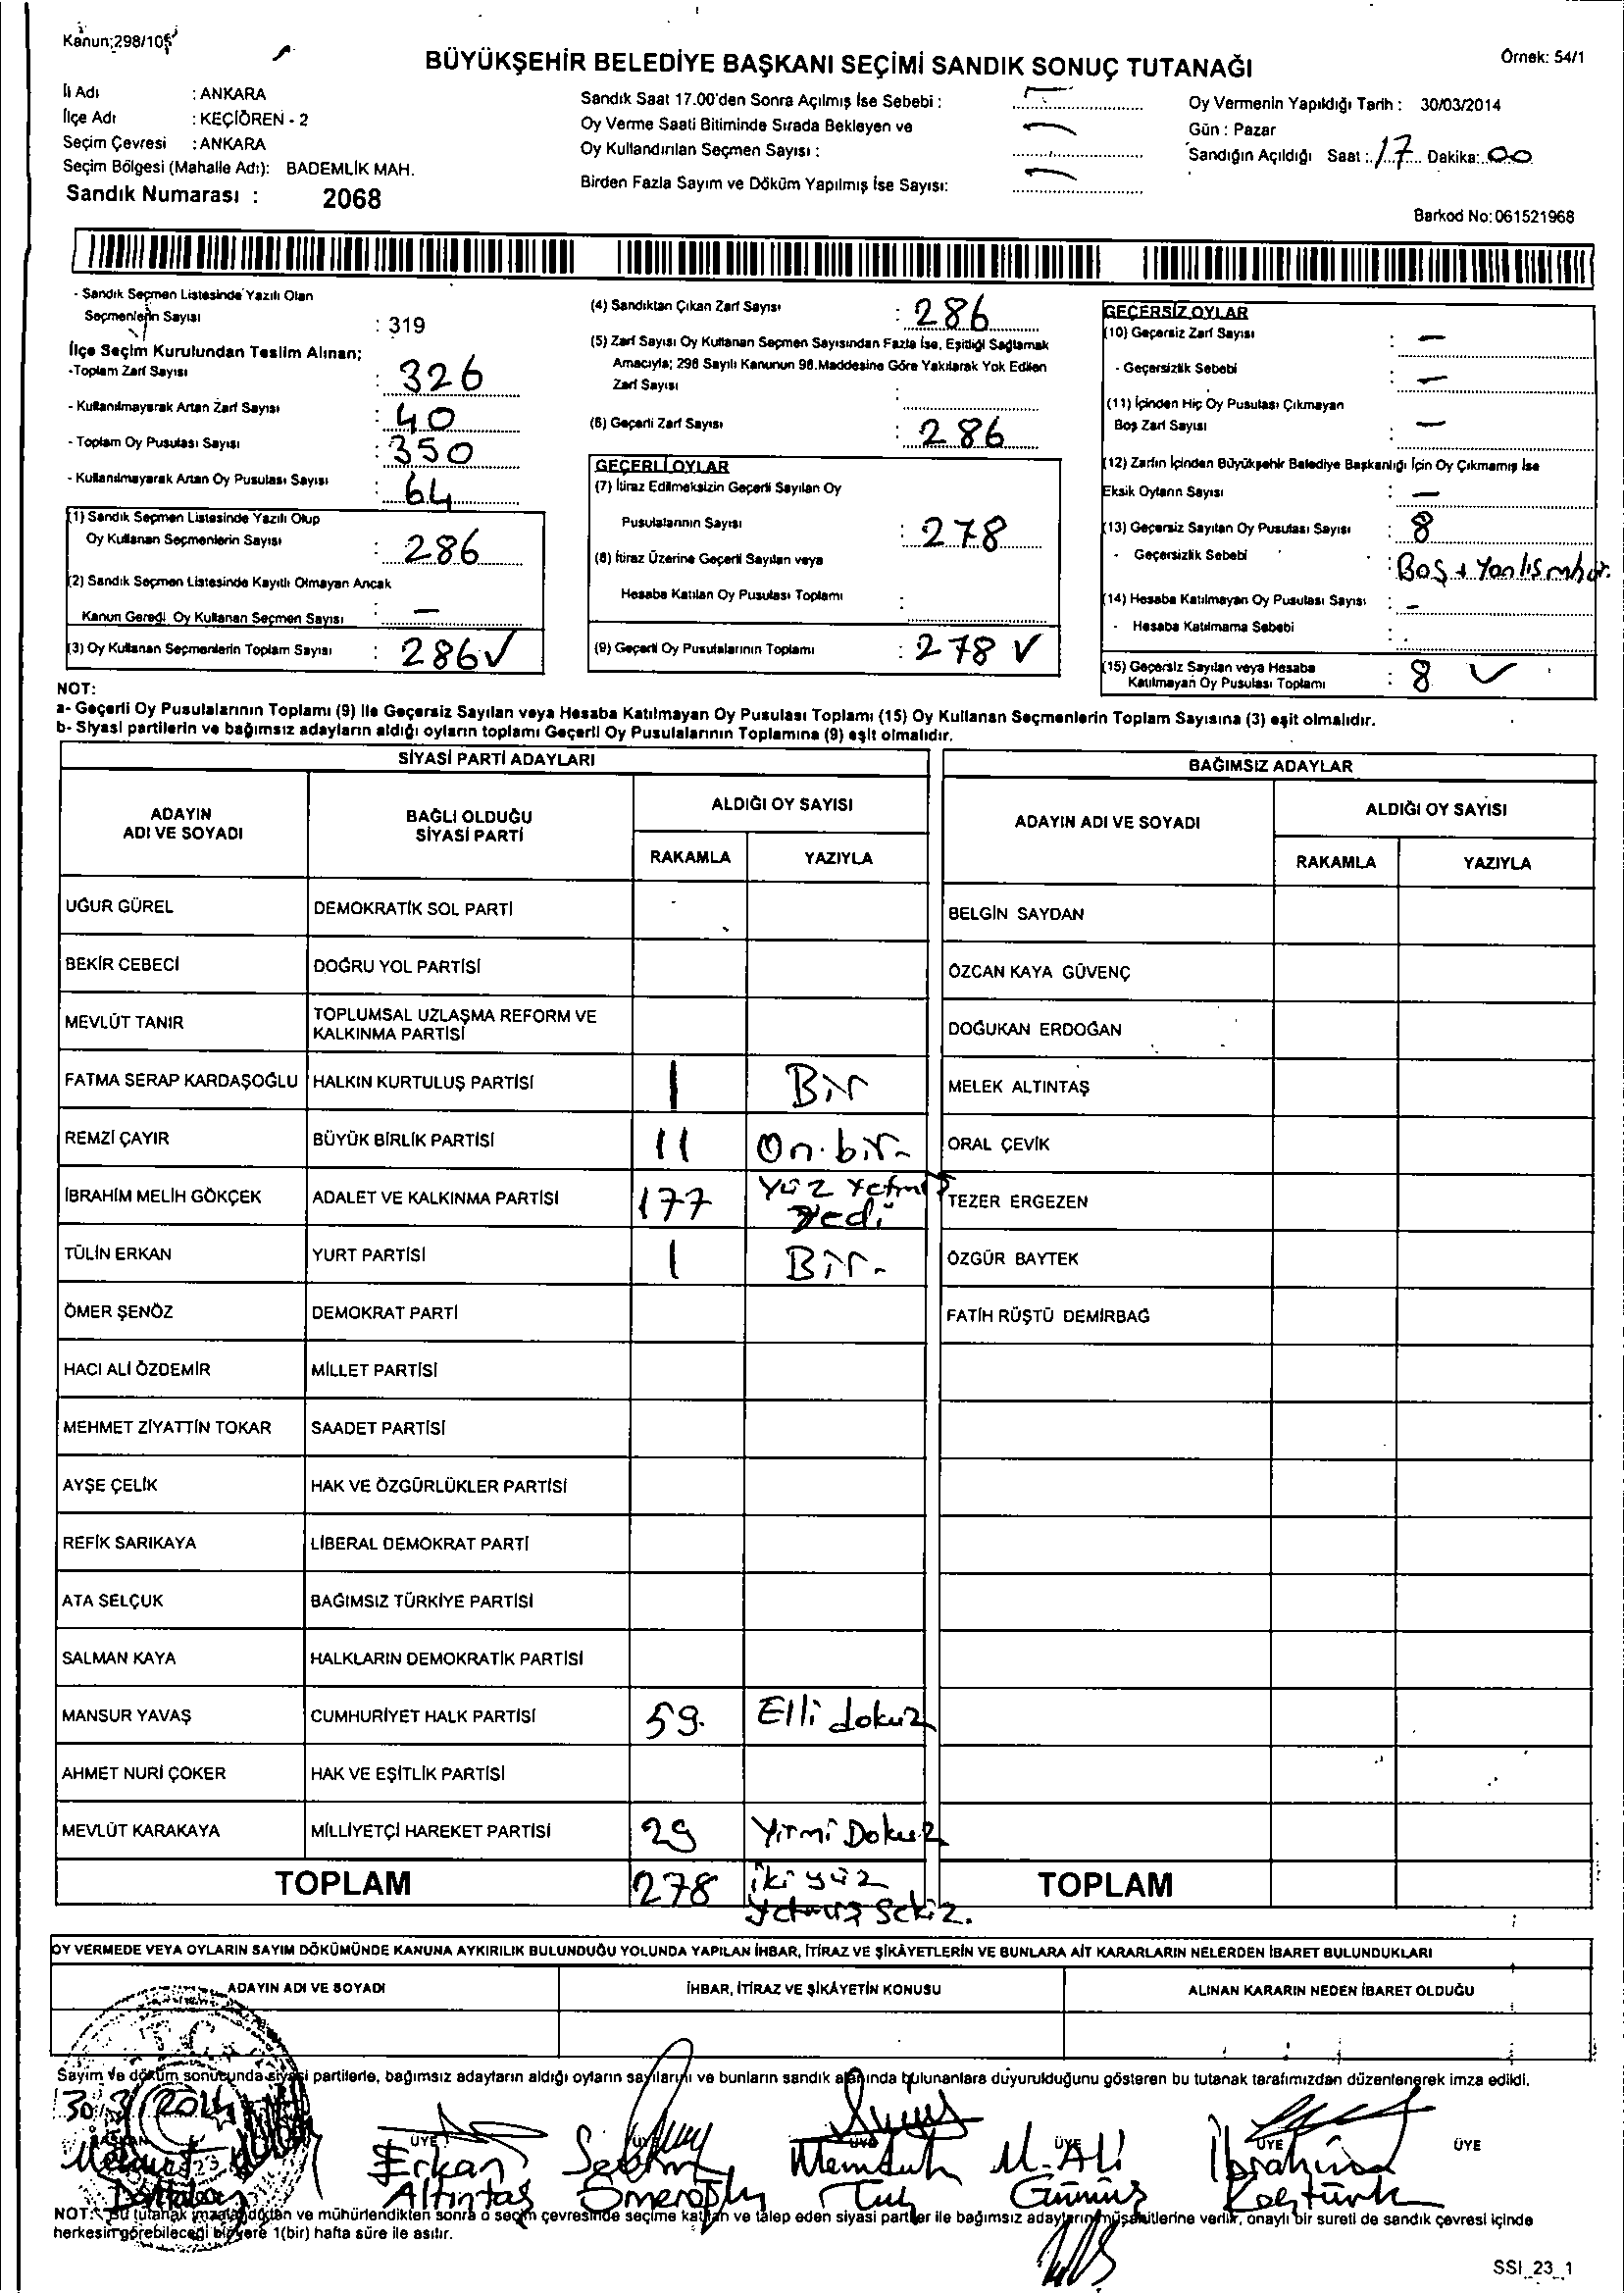 Kanun;298/105
Örnek: 54/1
BÜYÜKŞEHİR BELEDİYE BAŞKANI SEÇİMİ SANDIK SONUÇ TUTANAĞI
İl Adı : ANKARA
İlçe Adı : KEÇİÖREN - 2
Seçim Çevresi : ANKARA
Seçim Bölgesi (Mahalle Adı): BADEMLİK MAH.
Sandık Numarası : 2068
Sandık Saat 17.00'den Sonra Açılmış İse Sebebi : —
Oy Verme Saati Bitiminde Sırada Bekleyen ve
Oy Kullandırılan Seçmen Sayısı : —
Birden Fazla Sayım ve Döküm Yapılmış İse Sayısı: —
Oy Vermenin Yapıldığı Tarih : 30/03/2014
Gün : Pazar
Sandığın Açıldığı Saat : 17 Dakika: 00
Barkod No: 061521968
- Sandık Seçmen Listesinde Yazılı Olan
Seçmenlerin Sayısı : 319
İlçe Seçim Kurulundan Teslim Alınan;
-Toplam Zarf Sayısı : 326
- Kullanılmayarak Artan Zarf Sayısı : 40
- Toplam Oy Pusulası Sayısı : 350
- Kullanılmayarak Artan Oy Pusulası Sayısı : 64
(1) Sandık Seçmen Listesinde Yazılı Olup
Oy Kullanan Seçmenlerin Sayısı : 286
(2) Sandık Seçmen Listesinde Kayıtlı Olmayan Ancak
Kanun Gereği Oy Kullanan Seçmen Sayısı : —
(3) Oy Kullanan Seçmenlerin Toplam Sayısı : 286 ✓
(4) Sandıktan Çıkan Zarf Sayısı : 286
(5) Zarf Sayısı Oy Kullanan Seçmen Sayısından Fazla İse, Eşitliği Sağlamak
Amacıyla; 298 Sayılı Kanunun 98.Maddesine Göre Yakılarak Yok Edilen
Zarf Sayısı :
(6) Geçerli Zarf Sayısı : 286
GEÇERLİ OYLAR
(7) İtiraz Edilmeksizin Geçerli Sayılan Oy
Pusulalarının Sayısı : 278
(8) İtiraz Üzerine Geçerli Sayılan veya
Hesaba Katılan Oy Pusulası Toplamı :
(9) Geçerli Oy Pusulalarının Toplamı : 278 ✓
GEÇERSİZ OYLAR
(10) Geçersiz Zarf Sayısı : —
- Geçersizlik Sebebi : —
(11) İçinden Hiç Oy Pusulası Çıkmayan
Boş Zarf Sayısı : —
(12) Zarfın İçinden Büyükşehir Belediye Başkanlığı İçin Oy Çıkmamış İse
Eksik Oyların Sayısı : —
(13) Geçersiz Sayılan Oy Pusulası Sayısı : 8
- Geçersizlik Sebebi : Boş + Yanlış mhür.
(14) Hesaba Katılmayan Oy Pusulası Sayısı : —
- Hesaba Katılmama Sebebi :
(15) Geçersiz Sayılan veya Hesaba
Katılmayan Oy Pusulası Toplamı : 8 ✓
NOT:
a- Geçerli Oy Pusulalarının Toplamı (9) ile Geçersiz Sayılan veya Hesaba Katılmayan Oy Pusulası Toplamı (15) Oy Kullanan Seçmenlerin Toplam Sayısına (3) eşit olmalıdır.
b- Siyasi partilerin ve bağımsız adayların aldığı oyların toplamı Geçerli Oy Pusulalarının Toplamına (9) eşit olmalıdır.
SİYASİ PARTİ ADAYLARI
ADAYIN ADI VE SOYADI BAĞLI OLDUĞU SİYASİ PARTİ ALDIĞI OY SAYISI
RAKAMLA YAZIYLA
UĞUR GÜREL DEMOKRATİK SOL PARTİ
BEKİR CEBECİ DOĞRU YOL PARTİSİ
MEVLÜT TANIR TOPLUMSAL UZLAŞMA REFORM VE
KALKINMA PARTİSİ
FATMA SERAP KARDAŞOĞLU HALKIN KURTULUŞ PARTİSİ 1 Bir
REMZİ ÇAYIR BÜYÜK BİRLİK PARTİSİ 11 On.bir-
İBRAHİM MELİH GÖKÇEK ADALET VE KALKINMA PARTİSİ 177 Yüz Yetmiş
Yedi
TÜLİN ERKAN YURT PARTİSİ 1 Bir-
ÖMER ŞENÖZ DEMOKRAT PARTİ
HACI ALİ ÖZDEMİR MİLLET PARTİSİ
MEHMET ZİYATTİN TOKAR SAADET PARTİSİ
AYŞE ÇELİK HAK VE ÖZGÜRLÜKLER PARTİSİ
REFİK SARIKAYA LİBERAL DEMOKRAT PARTİ
ATA SELÇUK BAĞIMSIZ TÜRKİYE PARTİSİ
SALMAN KAYA HALKLARIN DEMOKRATİK PARTİSİ
MANSUR YAVAŞ CUMHURİYET HALK PARTİSİ 59. Elli dokuz
AHMET NURİ ÇOKER HAK VE EŞİTLİK PARTİSİ
MEVLÜT KARAKAYA MİLLİYETÇİ HAREKET PARTİSİ 29 Yirmi Dokuz
TOPLAM 278 iki yüz
yetmiş sekiz.
BAĞIMSIZ ADAYLAR
ADAYIN ADI VE SOYADI ALDIĞI OY SAYISI
RAKAMLA YAZIYLA
BELGİN SAYDAN
ÖZCAN KAYA GÜVENÇ
DOĞUKAN ERDOĞAN
MELEK ALTINTAŞ
ORAL ÇEVİK
TEZER ERGEZEN
ÖZGÜR BAYTEK
FATİH RÜŞTÜ DEMİRBAĞ
TOPLAM
OY VERMEDE VEYA OYLARIN SAYIM DÖKÜMÜNDE KANUNA AYKIRILIK BULUNDUĞU YOLUNDA YAPILAN İHBAR, İTİRAZ VE ŞİKÂYETLERİN VE BUNLARA AİT KARARLARIN NELERDEN İBARET BULUNDUKLARI
ADAYIN ADI VE SOYADI İHBAR, İTİRAZ VE ŞİKÂYETİN KONUSU ALINAN KARARIN NEDEN İBARET OLDUĞU
Sayım ve döküm sonucunda siyasi partilerle, bağımsız adayların aldığı oyların sayılarını ve bunların sandık alanında bulunanlara duyurulduğunu gösteren bu tutanak tarafımızdan düzenlenerek imza edildi.
30/3/2014
BAŞKAN ÜYE ÜYE ÜYE ÜYE ÜYE ÜYE
Erkan Memduh M. Ali İbrahim
Altıntaş Ömeroğlu Gümüş Koçtürk
NOT: Bu tutanak imzalandıktan ve mühürlendikten sonra o seçim çevresinde seçime katılan ve talep eden siyasi partiler ile bağımsız adayların müşahitlerine verilir, onaylı bir sureti de sandık çevresi içinde
herkesin görebileceği bir yere 1(bir) hafta süre ile asılır.
SSI_23_1